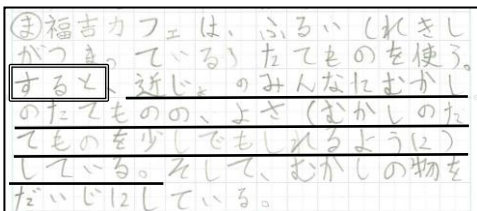 ま福吉カフェは、ふるい(れきし
がつまっている)たてものを使う。
すると、近じょのみんなにむかし
のたてものの、よさ(むかしのた
てものを少しでもしれるように)
している。そして、むかしの物を
だいじにしている。